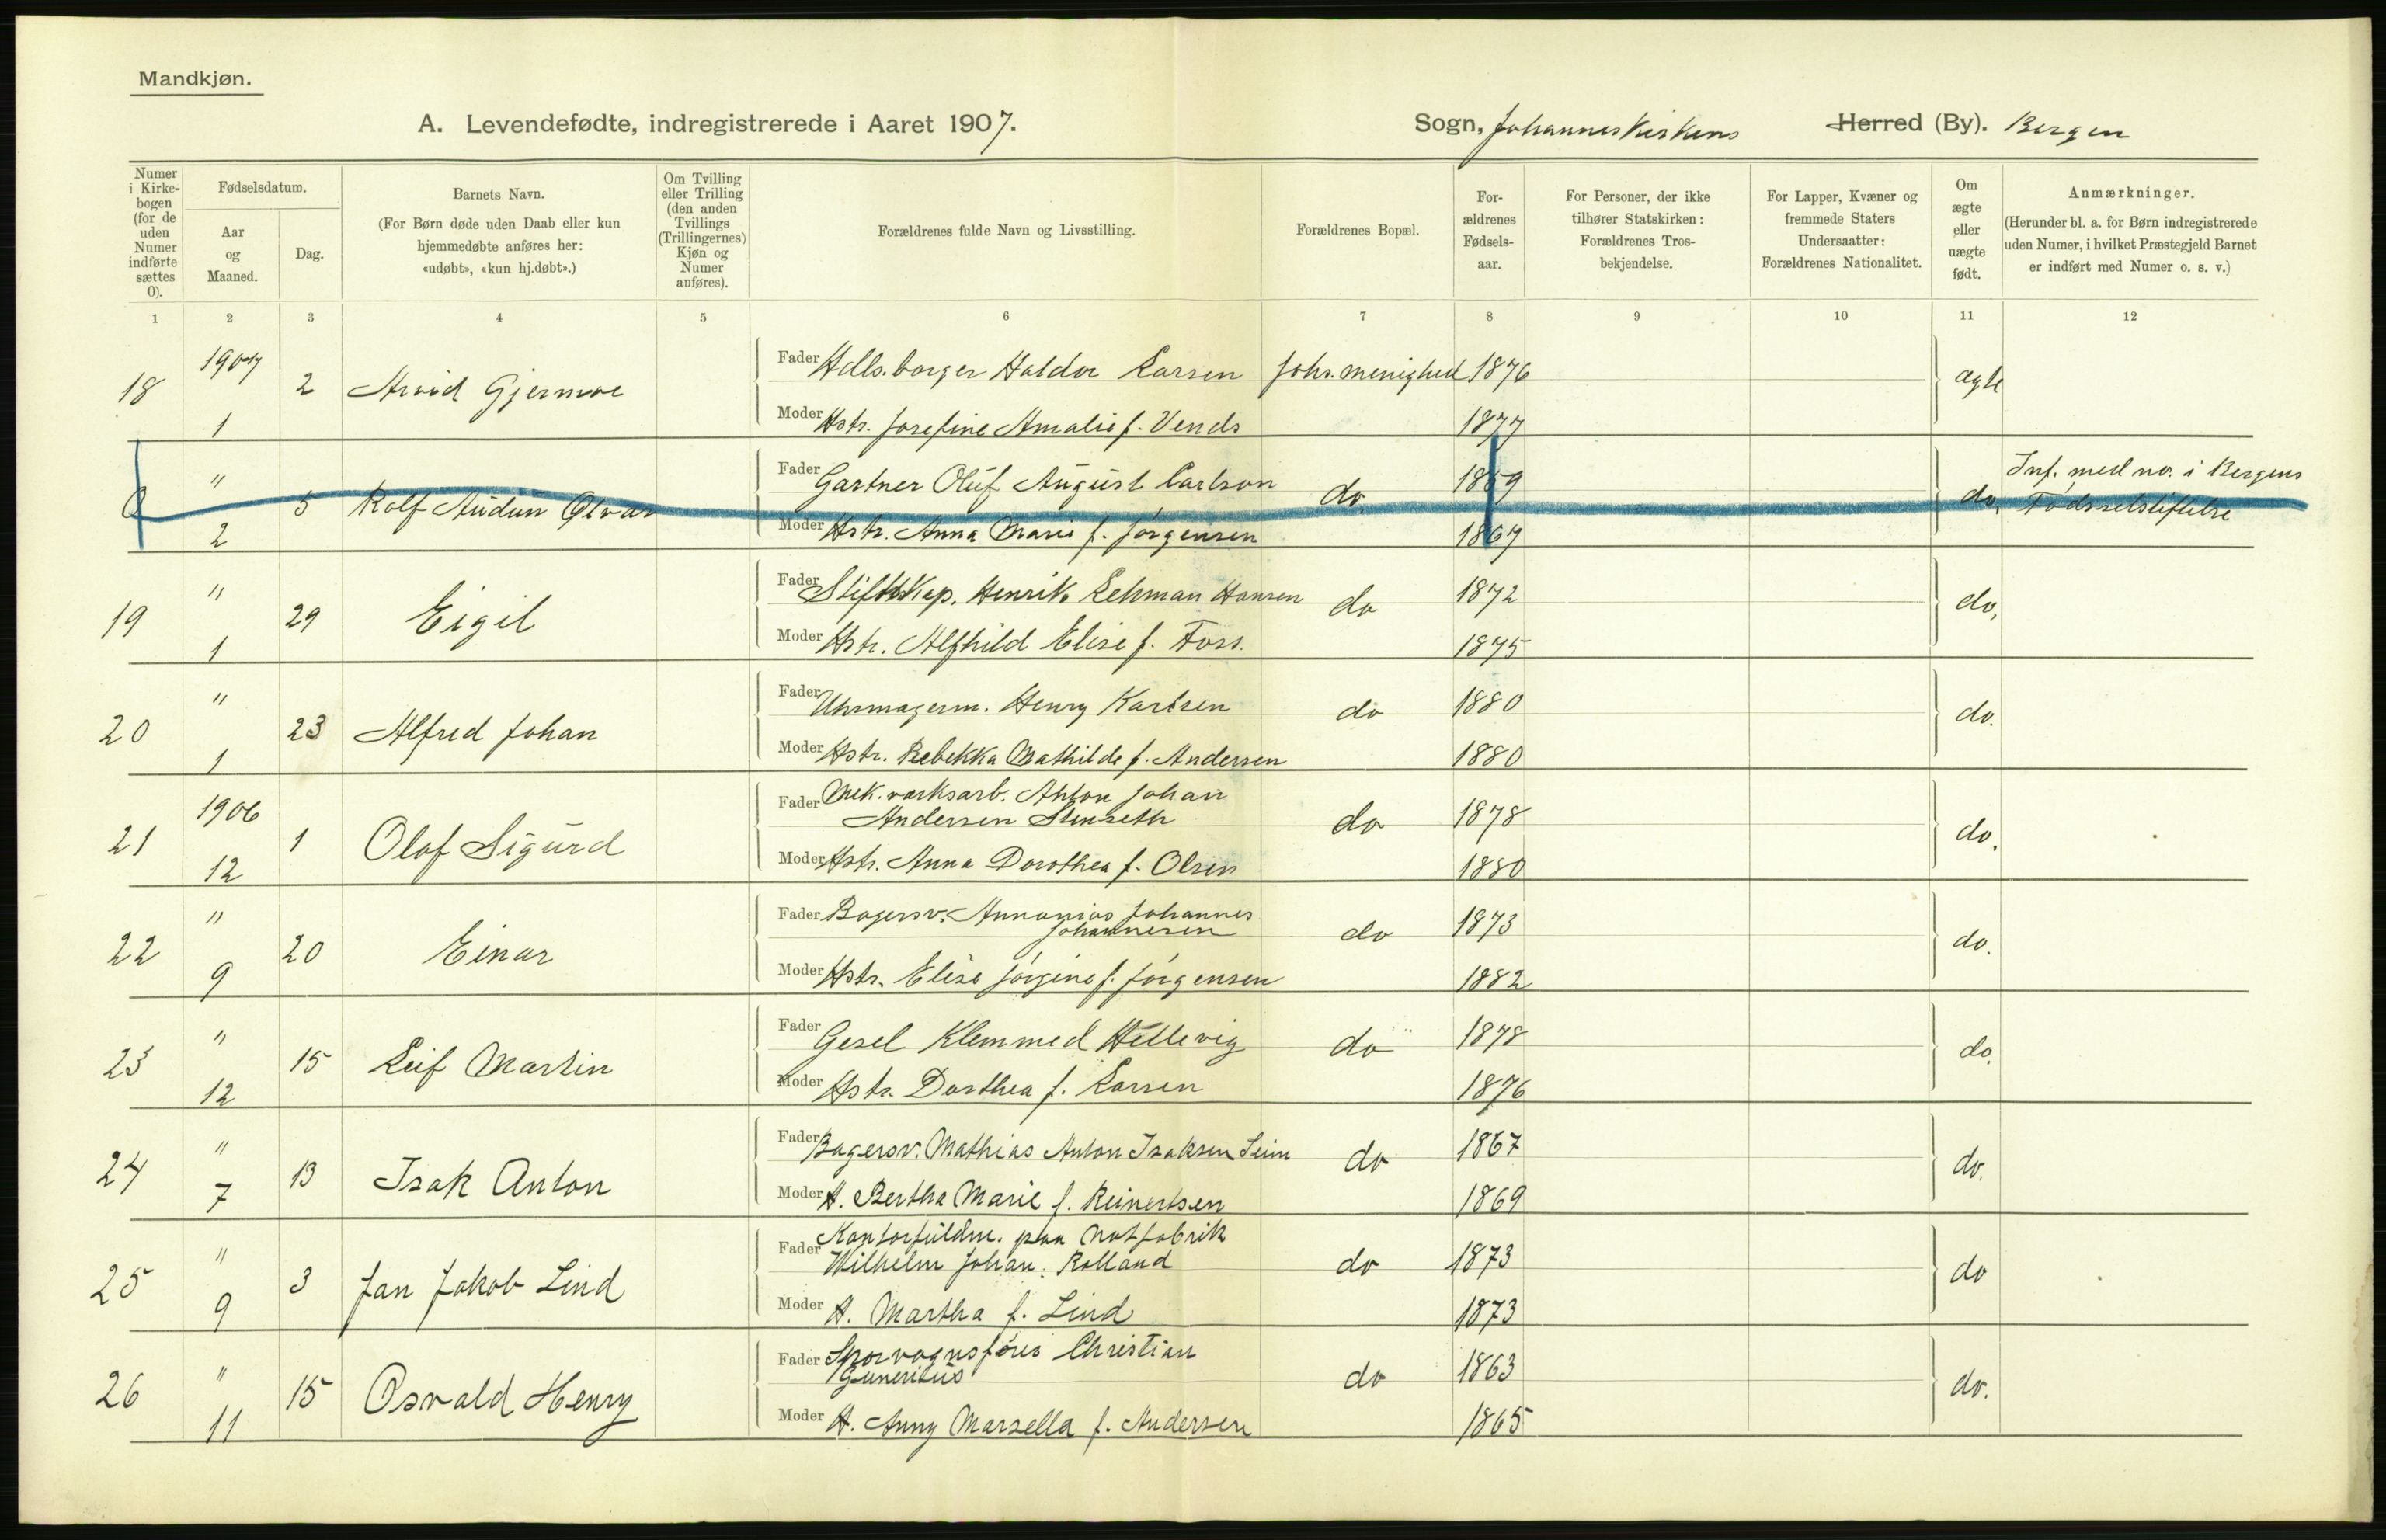 Mandkjøn.
A. Levendefødte, indregistrerede i Aaret 1907.
Sogn, Johanneskirkens Herred (By). Bergen
Numer i Kirkebogen (for de uden Numer indførte sættes 0).
Fødselsdatum.
Aar og Maaned.
Dag.
Barnets Navn.
(For Børn døde uden Daab eller kun hjemmedøbte anføres her: «udøbt», «kun hj.døbt».)
Om Tvilling eller Trilling (den anden Tvillings (Trillingernes) Kjøn og Numer anføres).
Forældrenes fulde Navn og Livsstilling.
Forældrenes Bopæl.
Forældrenes Fødselsaar.
For Personer, der ikke tilhører Statskirken: Forældrenes Trosbekjendelse.
For Lapper, Kvæner og fremmede Staters Undersaatter: Forældrenes Nationalitet.
Om ægte eller uægte født.
Anmærkninger.
(Herunder bl. a. for Børn indregistrerede uden Numer, i hvilket Præstegjeld Barnet er indført med Numer o. s. v.)
1 2 3 4 5 6 7 8 9 10 11 12
18 1907 1 2 Arvid Gjermoe
Fader Hdls.borger Haldor Larsen Johs. menighed 1876 ægte
Moder Hstr. Josefine Amalie f. Vends 1877
0 " 2 5 Rolf Audun
Fader Gartner Oluf August Carlson do. 1869 do. Inf. med no. i Bergens Fødselsstiftelse
Moder Hstr. Anna Marie f. Jørgensen 1867
19 " 1 29 Eigil
Fader Stiftskap. Henrik Lehman Hansen do 1872 do.
Moder Hstr. Alfhild Elise f. Foss. 1875
20 " 1 23 Alfred Johan
Fader Uhrmagerm. Henry Karlsen do 1880 do.
Moder Hstr. Rebekka Mathilde f. Andersen 1880
21 1906 12 1 Olaf Sigurd
Fader Mek. værksarb. Anton Johan
Andersen Stenseth do 1878 do.
Moder Hstr. Anna Dorothea f. Olsen 1880
22 " 9 20 Einar
Fader Bagersv. Annanias Johannes
Johannesen do 1873 do.
Moder Hstr. Elise Jørgine f. Jørgensen 1882
23 " 12 15 Leif Martin
Fader Gesel Klemmed Hellevig do 1878 do.
Moder Hstr. Dorthea f. Larsen 1876
24 " 7 13 Isak Anton
Fader Bagersv. Mathias Anton Isaksen Seim do 1867 do.
Moder H. Bertha Marie f. Reinertsen 1869
25 " 9 3 Jan Jakob Lind
Fader Kontorfuldm. paa Notfabrik
Wilhelm Johan Rolland do 1873 do
Moder H. Martha f. Lind 1873
26 " 11 15 Osvald Henry
Fader Sporvognsfører Christian
Guneritus do 1863 do.
Moder H. Anny Marsella f. Andersen 1865